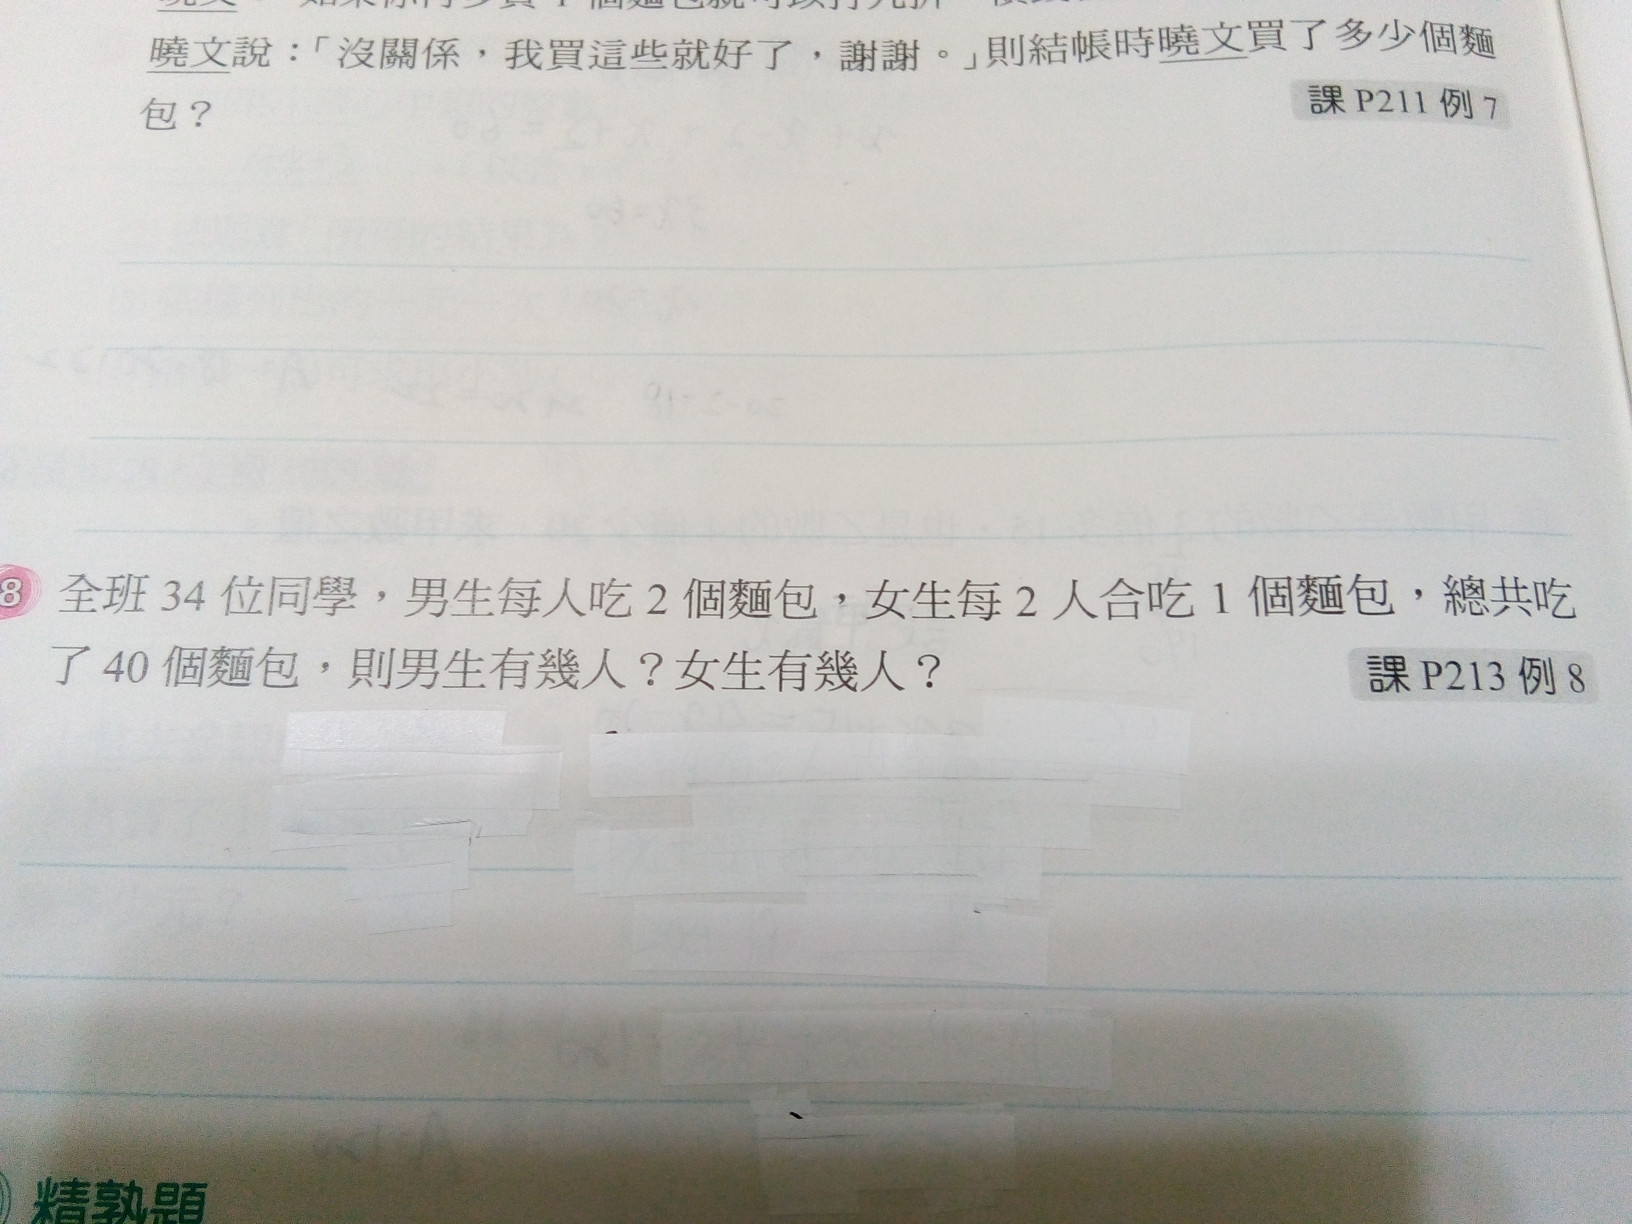 曉文說：「沒關係，我買這些就好了，謝謝。」則結帳時曉文買了多少個麵
包？
課 P211 例 7
8 全班 34 位同學，男生每人吃 2 個麵包，女生每 2 人合吃 1 個麵包，總共吃
了 40 個麵包，則男生有幾人？女生有幾人？
課 P213 例 8
精熟題